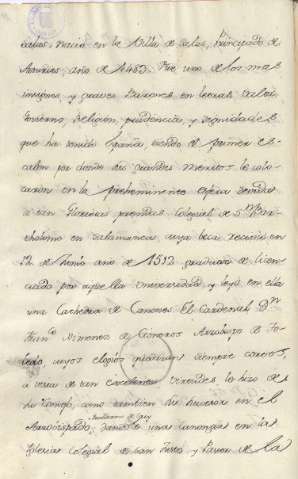 nació en la Villa de Salas, Principado de
Asturias, año de 1483. Fue uno de los mas
insignes y graves Varones en letras, valor
Govierno, Religion, prudencia, y dignidades
que ha tenido España siendo el primer es
calon por donde sus grandes meritos le colo
caron en la preheminencia
a tan gloriosas prendas, Colegial de Sn Bar
tholomé en Salamanca, cuya beca recivió en
12 de Junio año de 1512 graduado de licen
ciado por aquella Universidad, y leyó en ella
una Cathedra de Canones. El Cardenal Dn
Franco Ximenez de Cisneros Arzobispo de To
ledo, cuyos elogios siempre cortos,
a vista de tan excelentes virudes le hizo de
su Consejo, como tambien su Huesor en el
Arzobispado, dando le unas canonjias en las
Iglesias Colegial de San Justo y Pastor de la